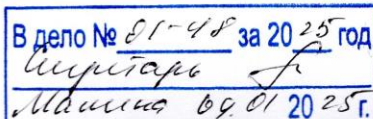 В дело № 01-48 за 2025 год
Секретарь
Машина 09.01 2025 г.